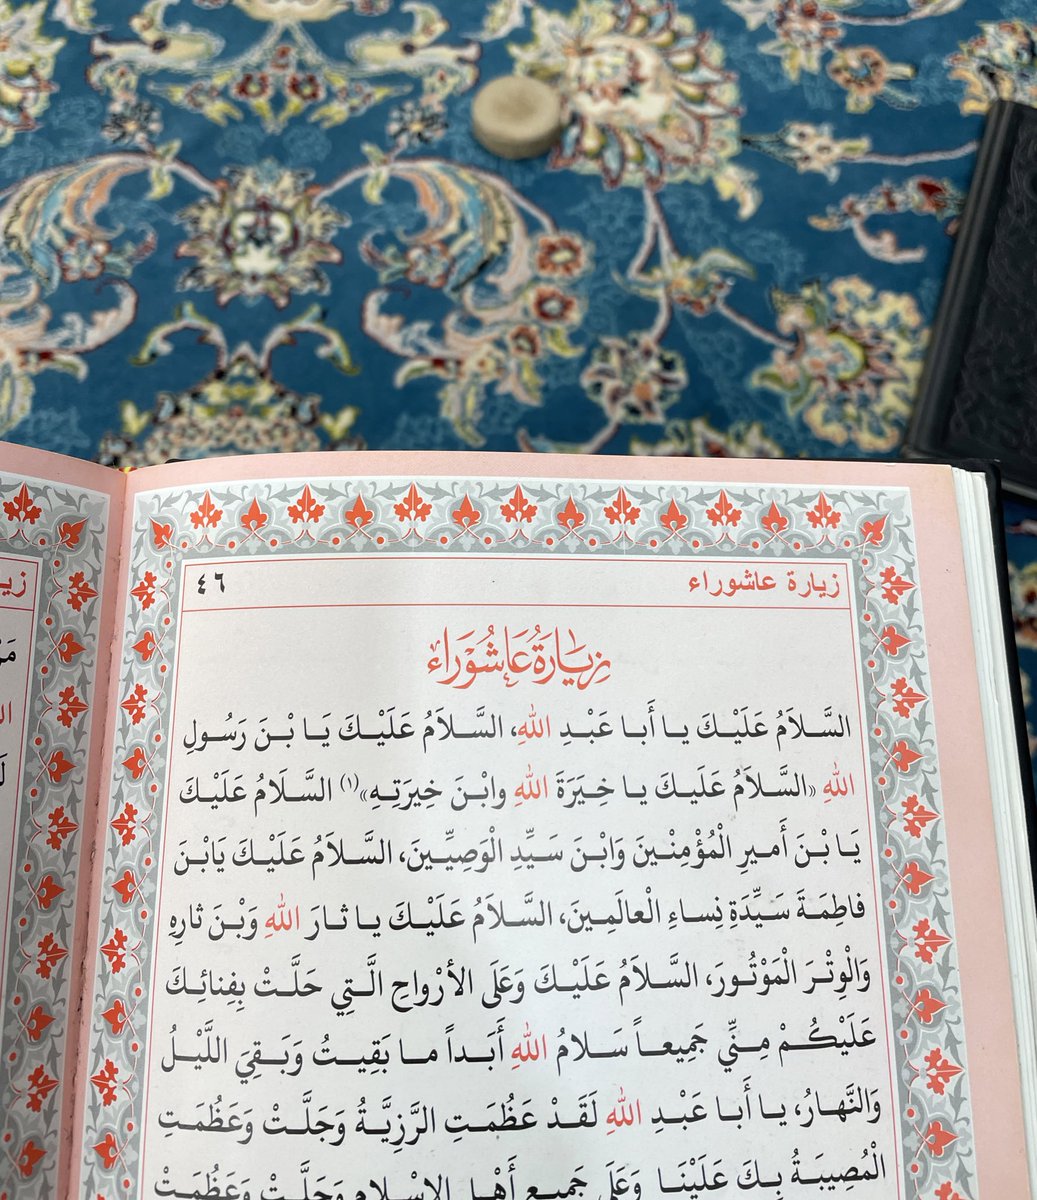 زيارة عاشوراء ٤٦
زِيَارَةُ عَاشُورَاء
السَّلاَمُ عَلَيْكَ يا أَبا عَبْدِ اللهِ، السَّلاَمُ عَلَيْكَ يَا بْنَ رَسُولِ
اللهِ «السَّلاَمُ عَلَيكَ يا خِيَرَةَ اللهِ وابْنَ خِيَرَتِهِ»(١) السَّلامُ عَلَيْكَ
يَا بْنَ أَمِيرِ الْمُؤْمِنْينَ وَابْنَ سَيِّدِ الْوَصِيِّينَ، السَّلامُ عَلَيْكَ يَابْنَ
فاطِمَةَ سَيِّدَةِ نِساءِ الْعالَمِينَ، السَّلاَمُ عَلَيْكَ يا ثارَ اللهِ وَبْنَ ثارِهِ
وَالْوِتْرَ الْمَوْتُورَ، السَّلاَمُ عَلَيْكَ وَعَلَى الأرْواحِ الَّتِي حَلَّتْ بِفِنائِكَ
عَلَيْكُمْ مِنِّي جَمِيعاً سَلامُ اللهِ أَبَداً ما بَقِيتُ وَبَقِيَ اللَّيْلُ
وَالنَّهارُ، يا أَبا عَبْدِ اللهِ لَقَدْ عَظُمَتِ الرَّزِيَّةُ وَجَلَّتْ وَعَظُمَتِ
الْمُصِيبَةُ بِكَ عَلَيْنَا وَعَلَى جَمِيعِ أَهْلِ الإسْلامِ وَجَلَّتْ وَعَظُمَتْ